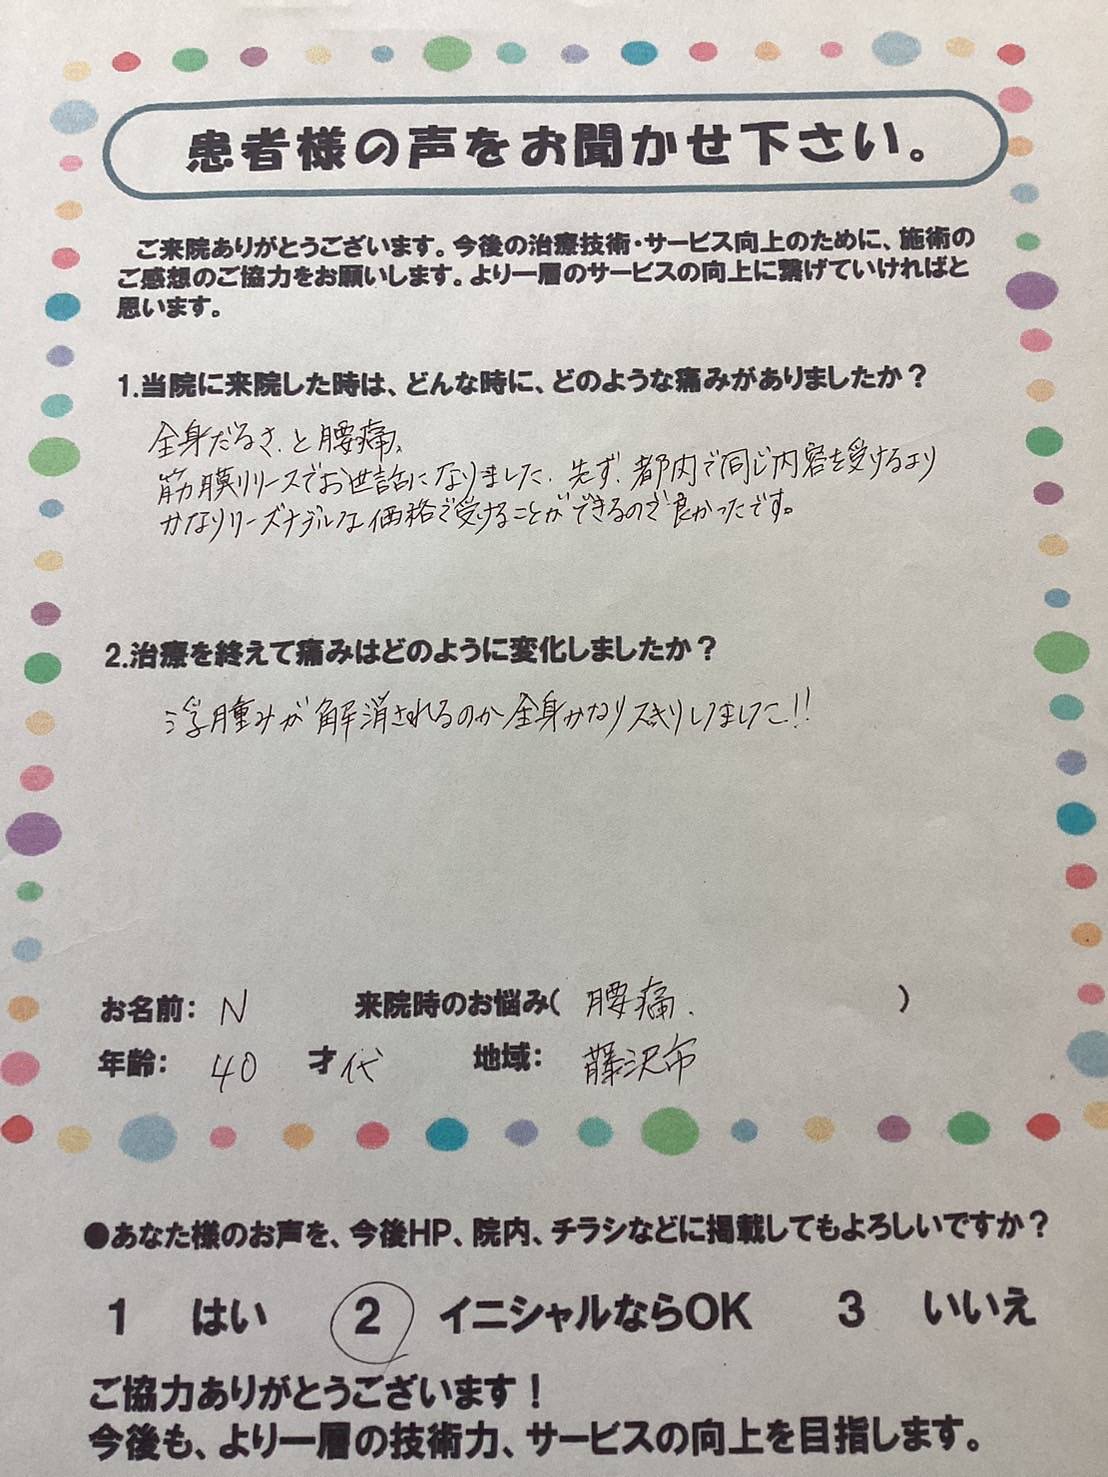 患者様の声をお聞かせ下さい。
ご来院ありがとうございます。今後の治療技術・サービス向上のために、施術の
ご感想のご協力をお願いします。より一層のサービスの向上に繋げていければと
思います。
1.当院に来院した時は、どんな時に、どのような痛みがありましたか？
全身だるさ、と腰痛、
筋膜リリースでお世話になりました、先ず、都内で同じ内容を受けるより
かなりリーズナブルな価格で受けることができるので良かったです。
2.治療を終えて痛みはどのように変化しましたか？
浮腫みが解消されるのか全身かなりスッキリしました!!
お名前： N 来院時のお悩み( 腰痛、 )
年齢： 40 才代 地域： 藤沢市
●あなた様のお声を、今後HP、院内、チラシなどに掲載してもよろしいですか？
1 はい 2 イニシャルならOK 3 いいえ
ご協力ありがとうございます！
今後も、より一層の技術力、サービスの向上を目指します。